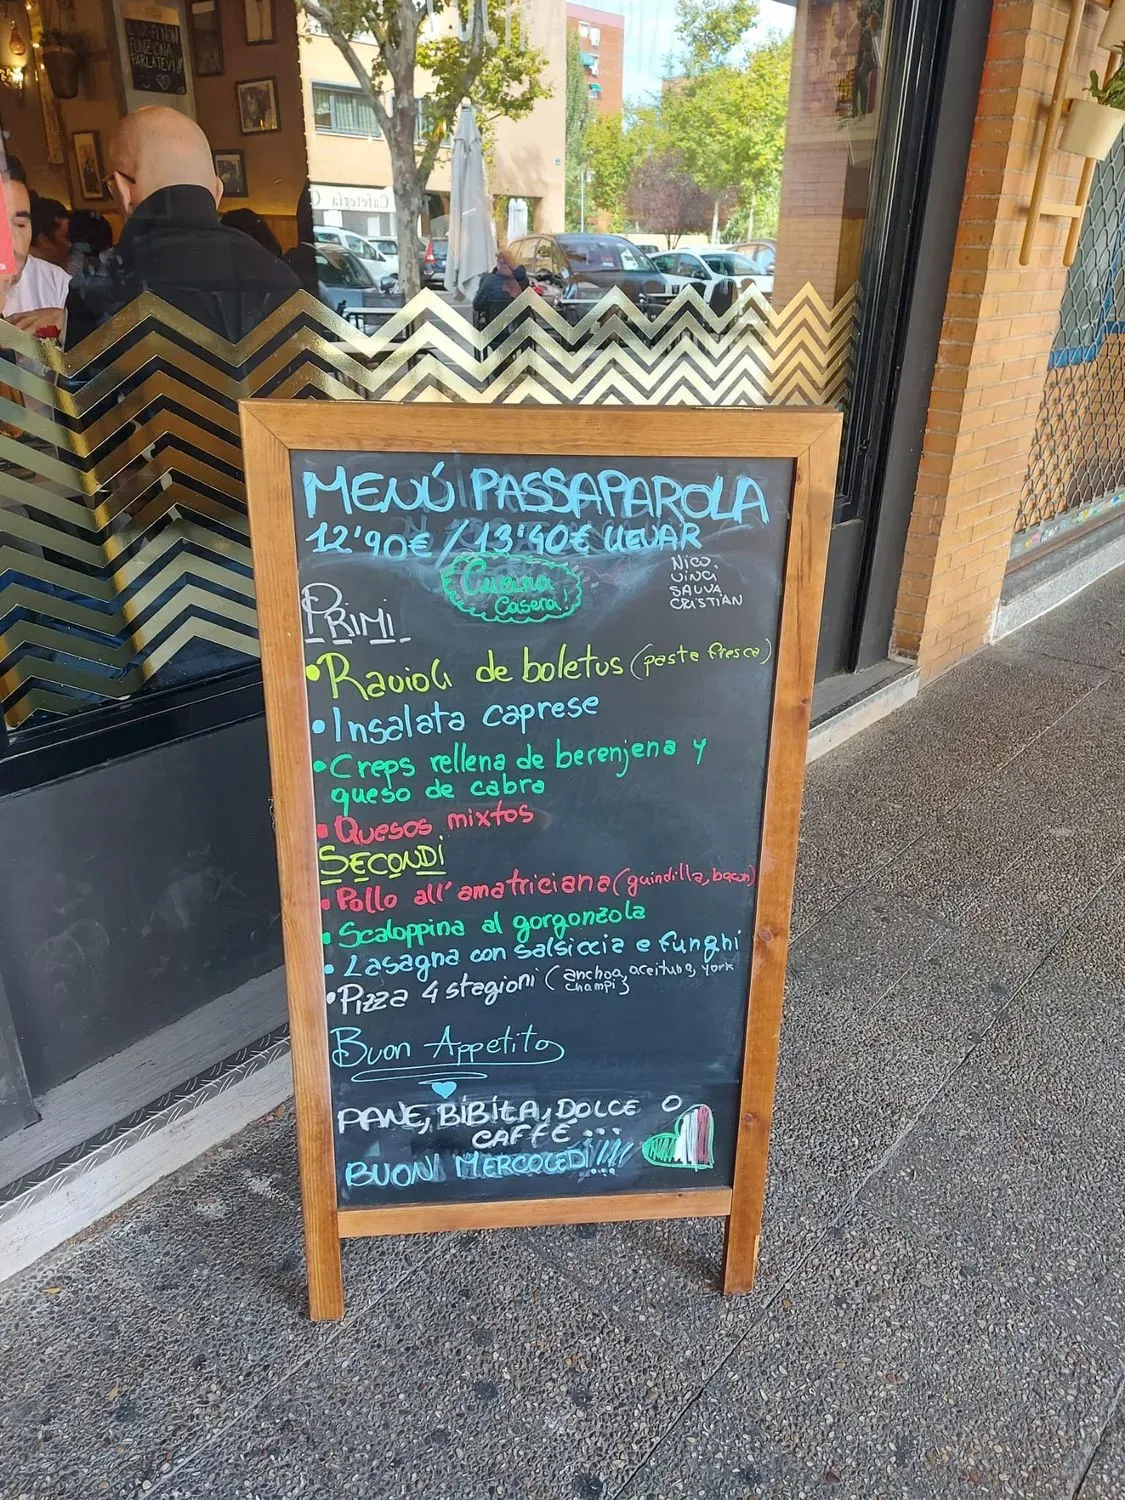 IL WI-FI NON
FUNZIONA
PARLATEVI!!
Cafeteria
MENÚ PASSAPAROLA
12'90€ / 13'40€ LLEVAR
Cucina
Casera
NICO,
VINCI
SALVA
CRISTIAN
PRIMI
• Ravioli de boletus (pasta fresca)
• Insalata caprese
• Creps rellena de berenjena y
queso de cabra
• Quesos mixtos
SECONDI
• Pollo all'amatriciana (guindilla, bacon)
• Scaloppina al gorgonzola
• Lasagna con salsiccia e funghi
• Pizza 4 stagioni (anchoa, aceituna, york
champi)
Buon Appetito
PANE, BIBITA, DOLCE O
CAFFÈ...
BUON MERCOLEDI